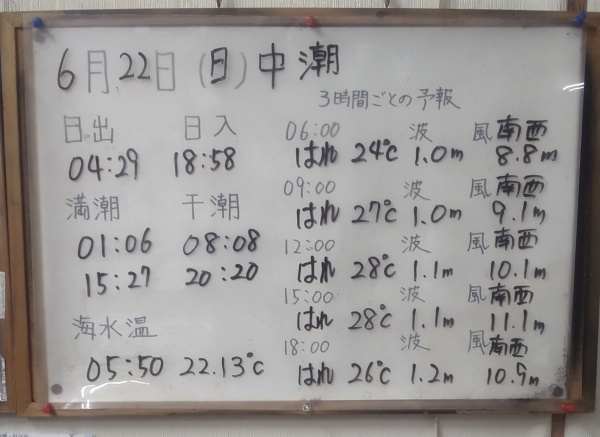 6月22日(日)中潮
3時間ごとの予報
日出 日入
04:29 18:58
満潮 干潮
01:06 08:08
15:27 20:20
海水温
05:50 22.13℃
06:00 波 風南西
はれ 24℃ 1.0m 8.8m
09:00 波 風南西
はれ 27℃ 1.0m 9.1m
12:00 波 風南西
はれ 28℃ 1.1m 10.1m
15:00 波 風南西
はれ 28℃ 1.1m 11.1m
18:00 波 風南西
はれ 26℃ 1.2m